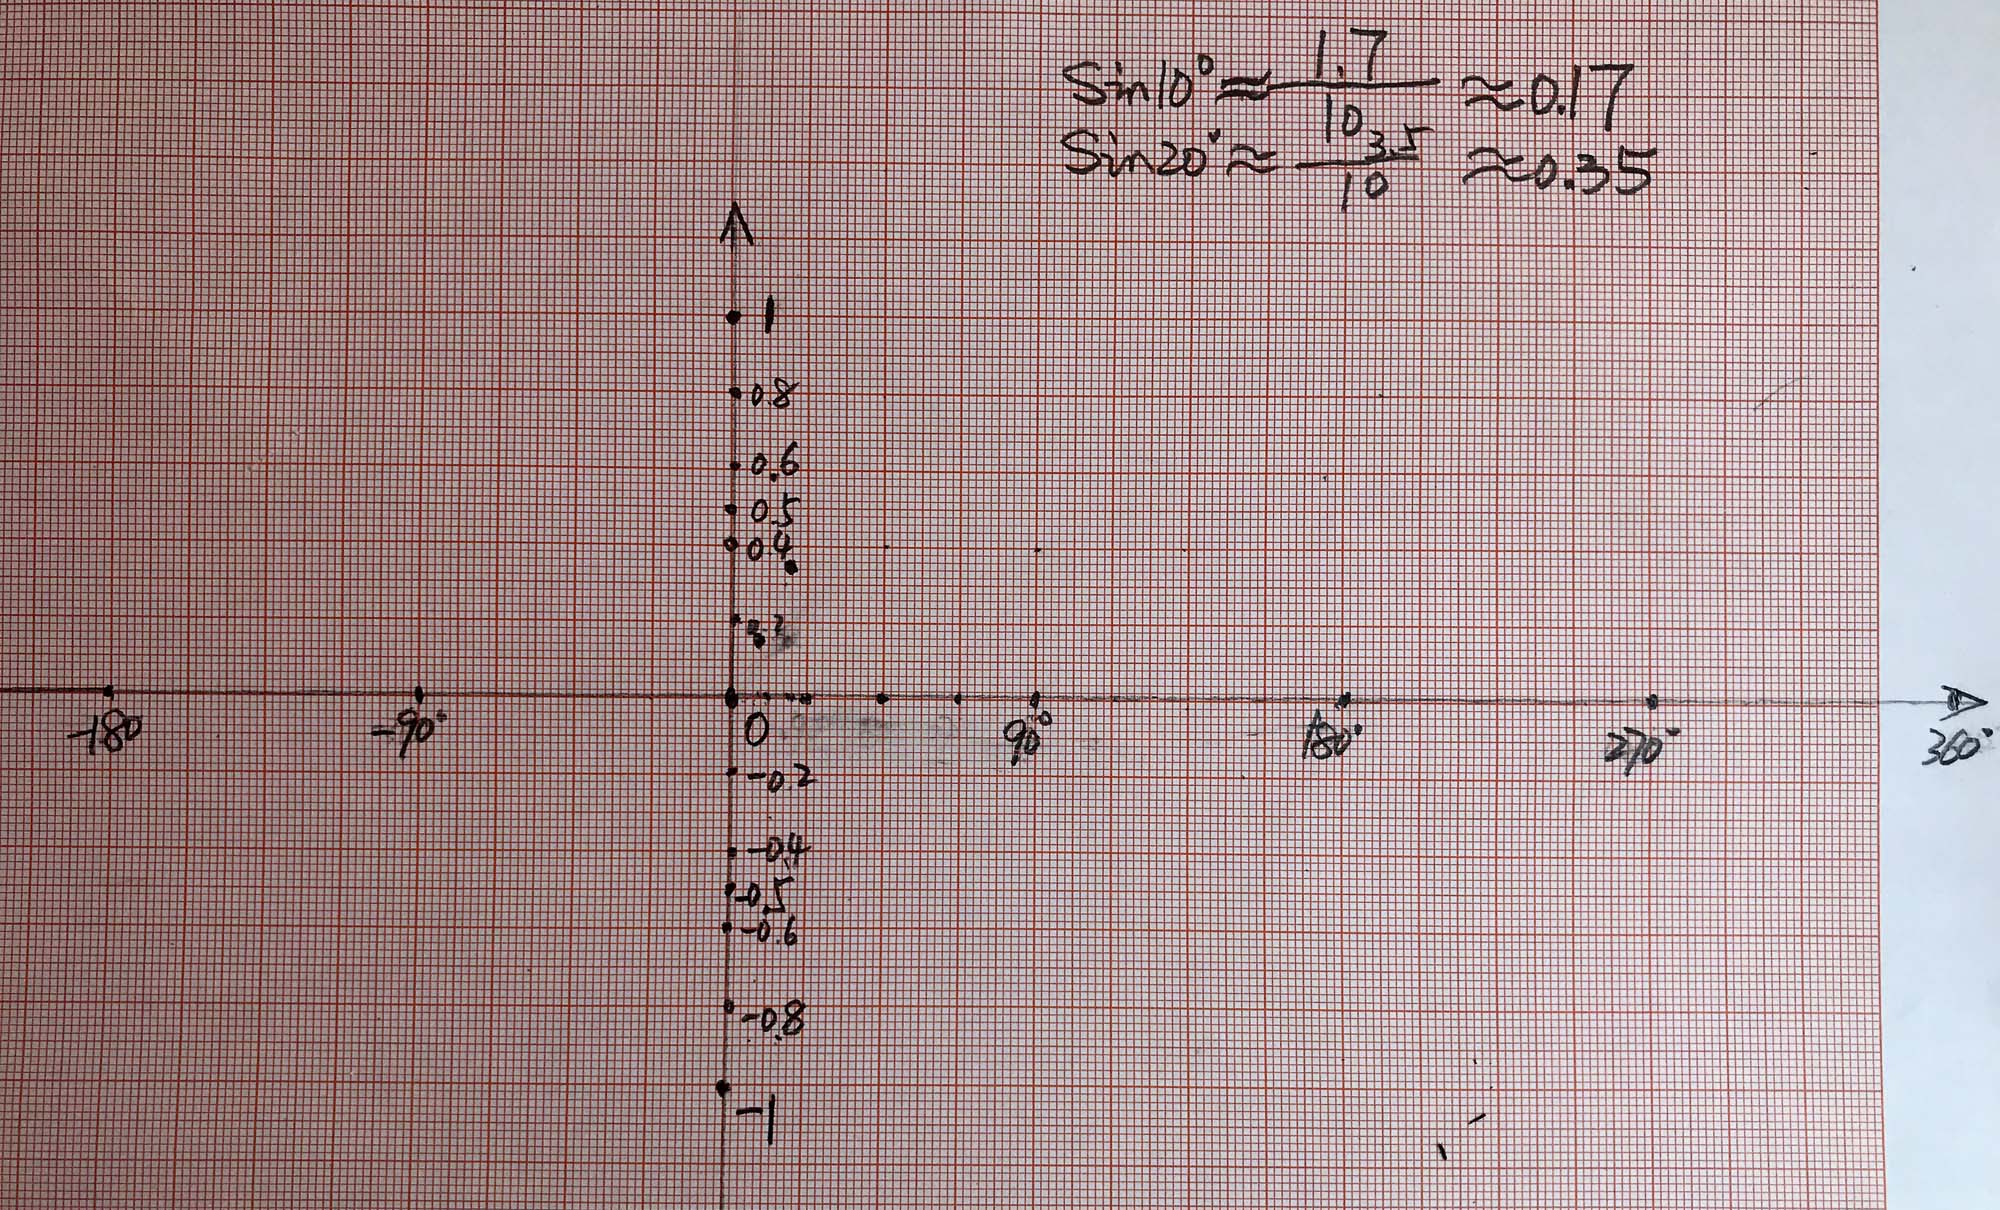 Sin10° ≈ 1.7/10 ≈ 0.17
Sin20° ≈ 3.5/10 ≈ 0.35
1
0.8
0.6
0.5
0.4
-180
-90°
0
90°
180°
270°
360°
-0.2
-0.4
-0.5
-0.6
-0.8
-1